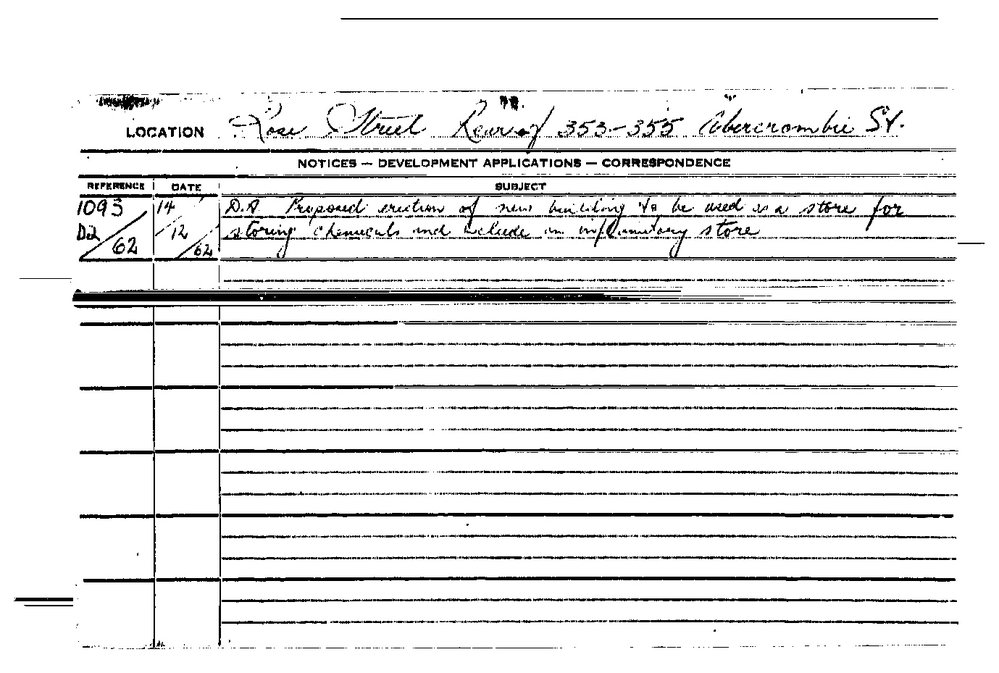 LOCATION Rose Street Rear of 353-355 Abercrombie St.
NOTICES — DEVELOPMENT APPLICATIONS — CORRESPONDENCE
REFERENCE DATE SUBJECT
1093 14 D.A Proposed erection of new building to be used as a store for
D2 / 12 storing chemicals and include an inflammatory store
62 / 62